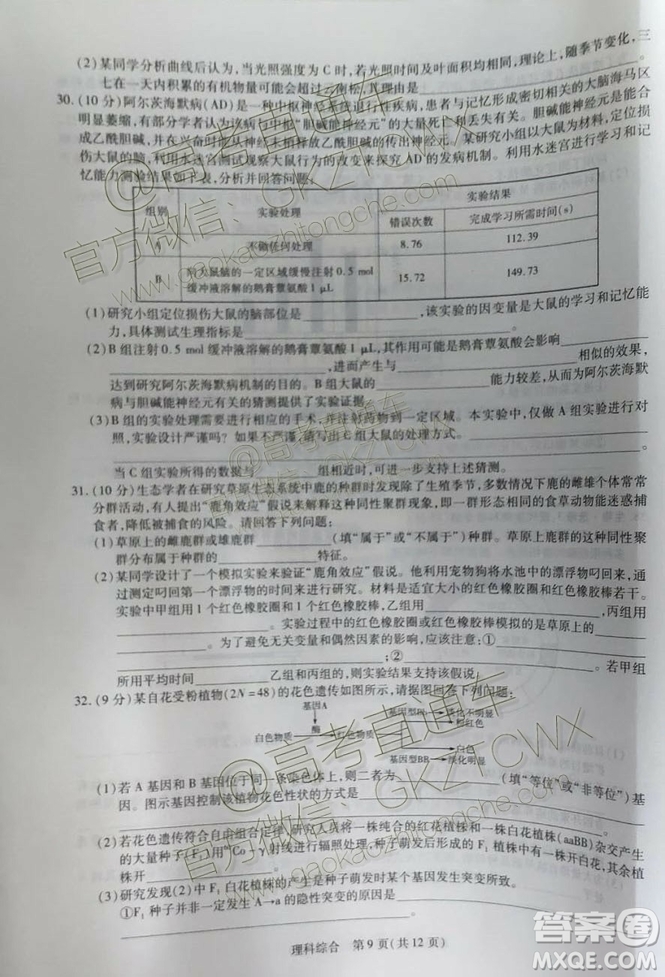 (2)某同学分析曲线后认为,当光照强度为C时,若光照时间及叶面积均相同,理论上,随季节变化,三
七在一天内积累的有机物量可能会超过三桠栀,其理由是
30.(10分)阿尔茨海默病(AD)是一种中枢神经系统退行性疾病,患者与记忆形成密切相关的大脑海马区
明显萎缩,有部分学者认为该病与“胆碱能神经元”的大量死亡和丢失有关。胆碱能神经元是能合
成乙酰胆碱,并在兴奋时能从神经末梢释放乙酰胆碱的传出神经元。某研究小组以大鼠为材料,定位损
伤大鼠的脑,利用水迷宫测试观察大鼠行为的改变来探究AD的发病机制。利用水迷宫进行学习和记
忆能力测验结果如下表,分析并回答问题:
组别 实验处理 实验结果
错误次数 完成学习所需时间(s)
A 不做任何处理 8.76 112.39
B 对大鼠脑的一定区域缓慢注射0.5 mol
缓冲液溶解的鹅膏蕈氨酸1 μL 15.72 149.73
(1)研究小组定位损伤大鼠的脑部位是 ,该实验的因变量是大鼠的学习和记忆能
力,具体测试生理指标是 。
(2)B组注射0.5 mol缓冲液溶解的鹅膏蕈氨酸1 μL,其作用可能是鹅膏蕈氨酸会影响
,进而产生与 相似的效果,
达到研究阿尔茨海默病机制的目的。B组大鼠的 能力较差,从而对阿尔茨海默
病与胆碱能神经元有关的猜测提供了实验证据。
(3)B组的实验处理需要进行相应的手术,并注射药物到一定区域。本实验中,仅做A组实验与B组对
照,实验设计严谨吗?如果不严谨,请写出C组大鼠的处理方式。
。
当C组实验所得的数据与 组相近时,可进一步支持上述猜测。
31.(10分)生态学者在研究草原生态系统中鹿的种群时发现除了生殖季节,多数情况下鹿的雌雄个体常常
分群活动,有人提出“鹿角效应”假说来解释这种同性聚群现象,即一群形态相同的食草动物能迷惑捕
食者,降低被捕食的风险。请回答下列问题:
(1)草原上的雌鹿群或雄鹿群 (填“属于”或“不属于”)种群。草原上鹿群的这种同性聚
群分布属于种群的 特征。
(2)某同学设计了一个模拟实验来验证“鹿角效应”假说。他利用宠物狗将水池中的漂浮物叼回来,通
过测定叼回第一个漂浮物的时间来进行研究。材料是适宜大小的红色橡胶圈和红色橡胶棒若干。
实验中甲组用1个红色橡胶圈和1个红色橡胶棒,乙组用 ,丙组用
。实验过程中的红色橡胶圈或红色橡胶棒模拟的是草原上的
。为了避免无关变量和偶然因素的影响,应注意:①
;② 。若甲组
所用平均时间 乙组和丙组的,则实验结果支持该假说。
32.(9分)某自花受粉植物(2N=48)的花色遗传如图所示,请据图回答下列问题:
基因A
酶
白色物质 红色物质
粉红色
白色
基因型BB 淡化明显
(1)若A基因和B基因位于同一条染色体上,则二者为 (填“等位”或“非等位”)基
因。图示基因控制该植物花色性状的方式是
。
(3)研究发现(2)中F₁白花植株的产生是种子萌发时某个基因突变所致。
①F₁种子并非处于萌发状态,发生A→a的隐性突变的原因是
理科综合 第9页(共12页)
@高考直通车
官方微信:GKZTCWX
gaokaozhitongche.com
答案圈
MXQE.COM